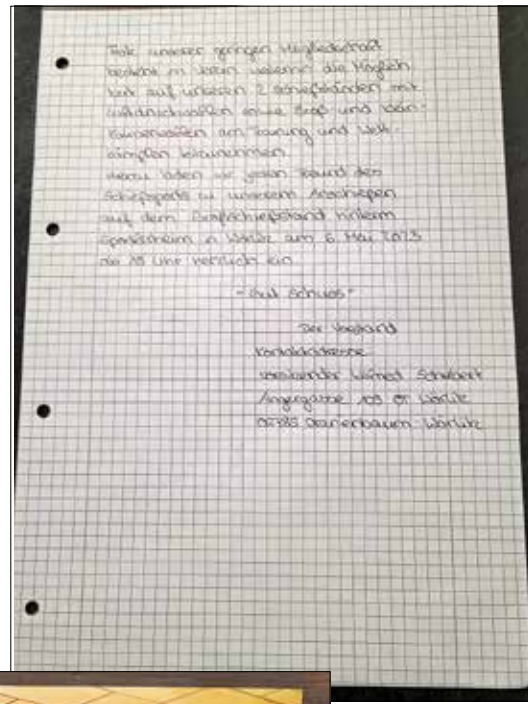 Trotz unserer geringen Mitgliedschaft
besteht in beiden Vereinen die Möglich
keit auf unseren 2 Schießständen mit
Luftdruckwaffen sowie Groß und Klein-
kaliberwaffen am Training und Wett-
kämpfen teilzunehmen
Hierzu laden wir jeden Freund des
Schießsports zu unserem Anschießen
auf dem Bogenschießstand hinterm
Sportlerheim in Wörlitz am 6. Mai 2023
ab 10 Uhr herzlich ein
- Gut Schuss -
Der Vorstand
Kontaktadresse
Vorsitzender Schubert
Angergasse 103 OT Wörlitz
06785 Oranienbaum-Wörlitz